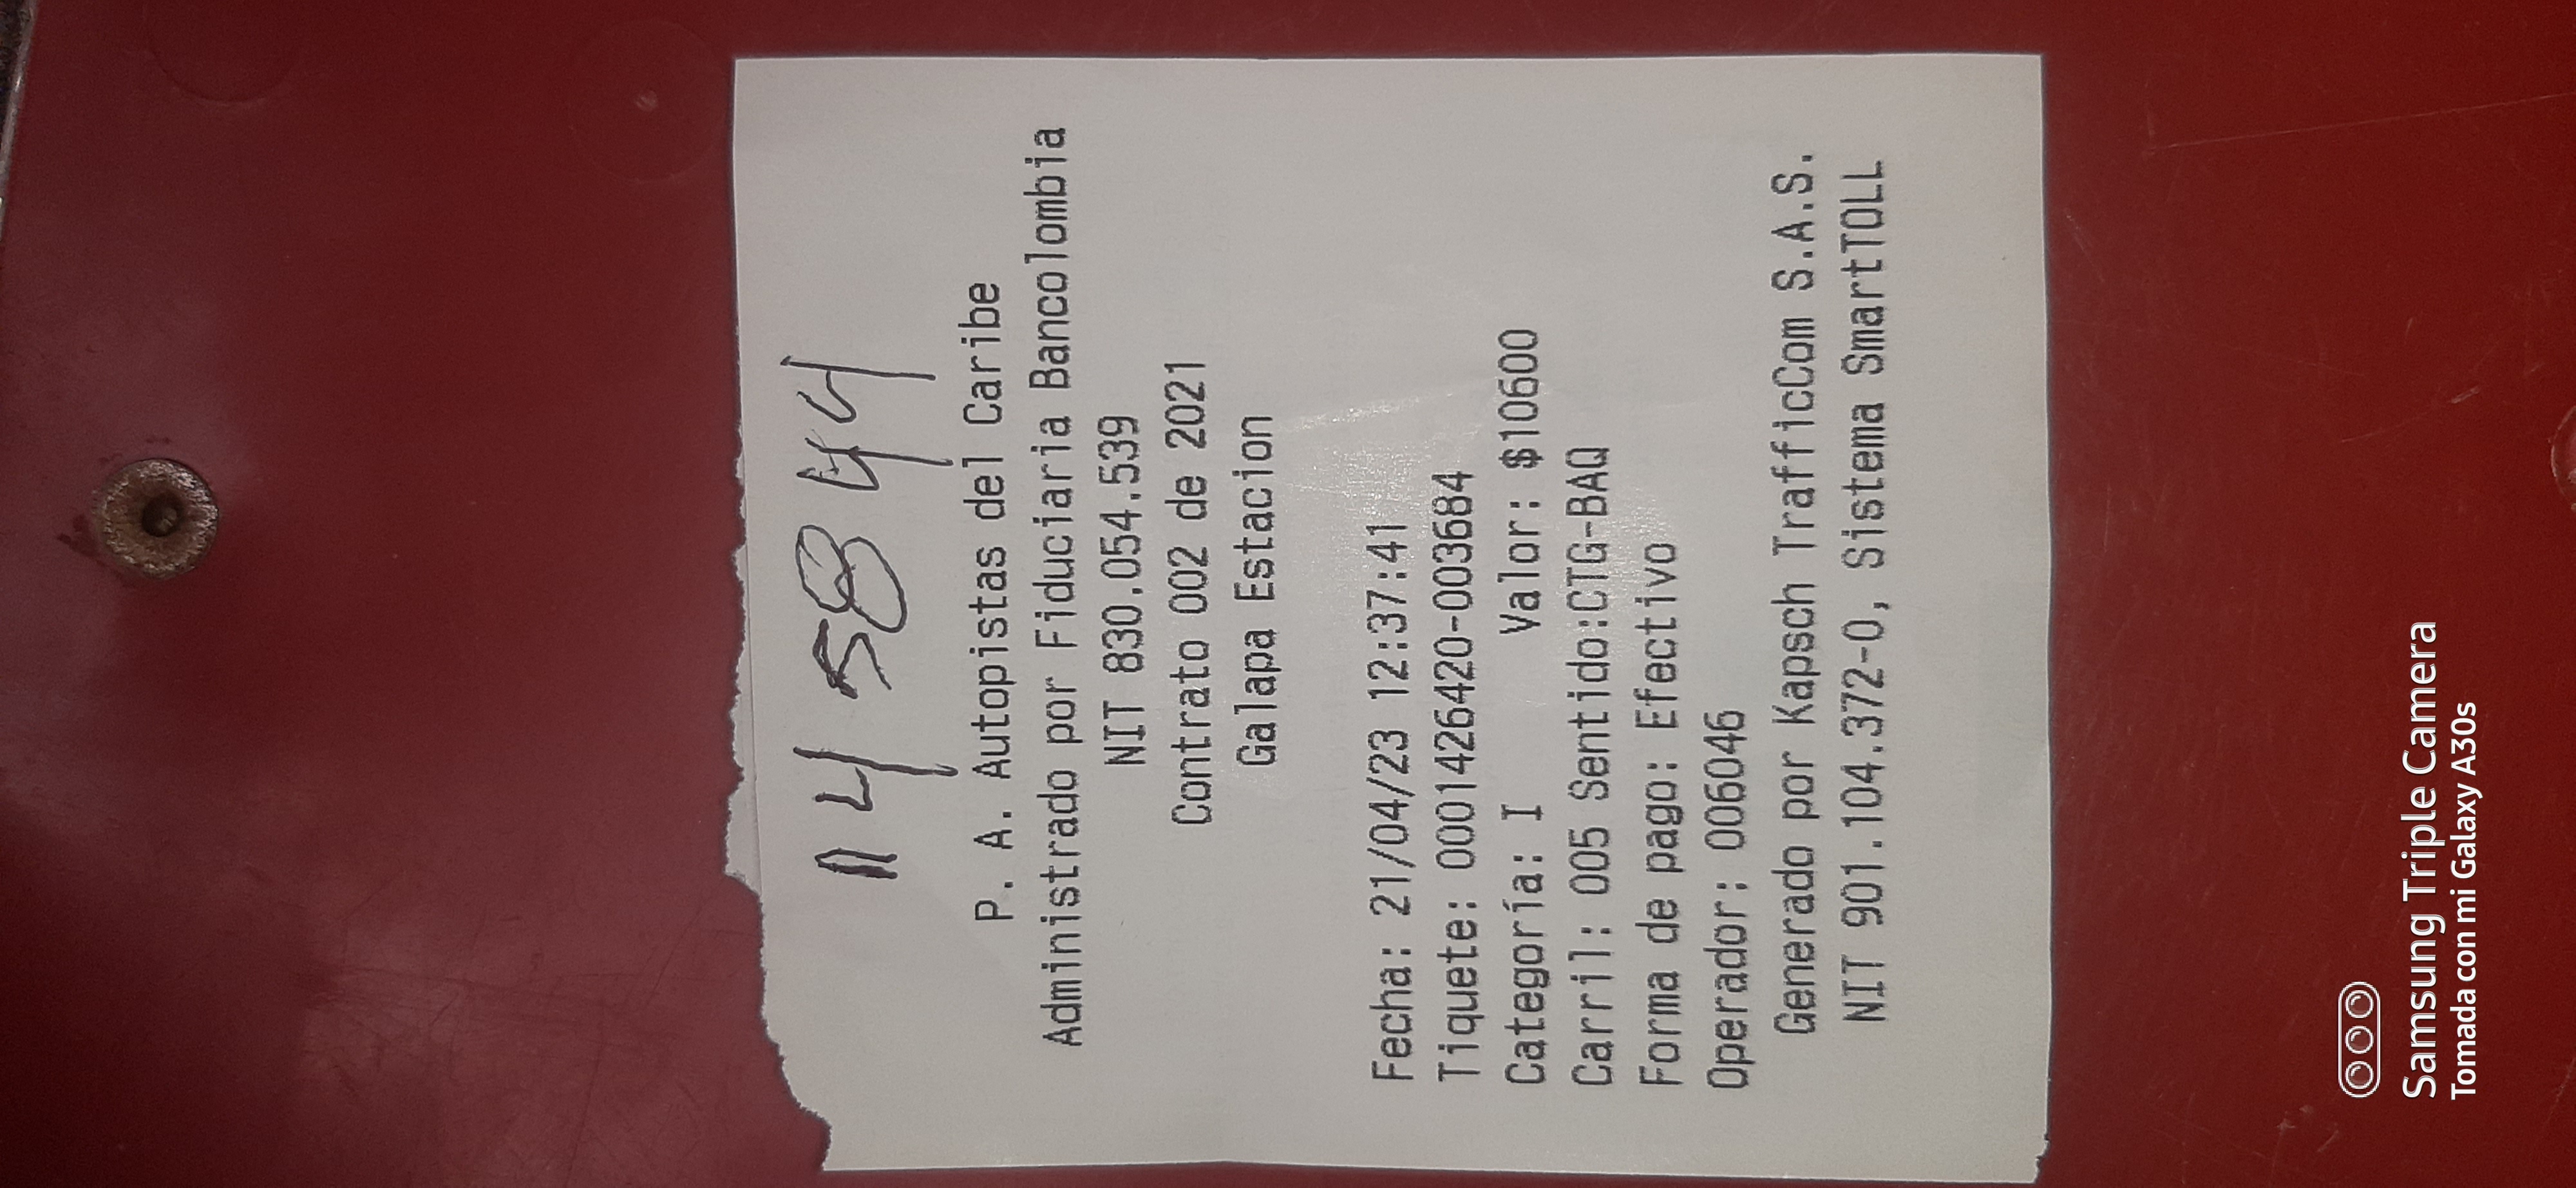 114 58 44
P. A. Autopistas del Caribe
Administrado por Fiduciaria Bancolombia
NIT 830.054.539
Contrato 002 de 2021
Galapa Estacion
Fecha: 21/04/23 12:37:41
Tiquete: 0001426420-003684
Categoría: I Valor: $10600
Carril: 005 Sentido:CTG-BAQ
Forma de pago: Efectivo
Operador: 006046
Generado por Kapsch TrafficCom S.A.S.
NIT 901.104.372-0, Sistema SmartTOLL
Samsung Triple Camera
Tomada con mi Galaxy A30s